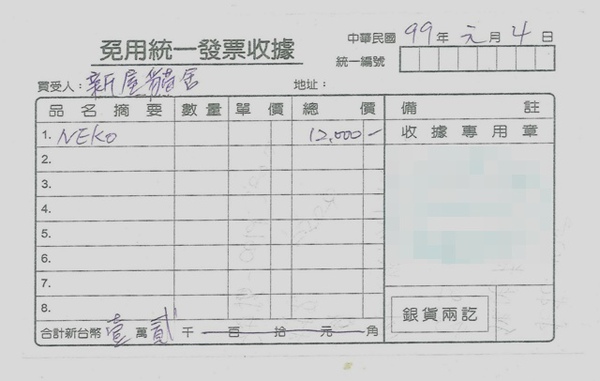 中華民國 99 年 元 月 4 日
免用統一發票收據
統一編號
買受人: 新屋貓舍 地址:
品名摘要 數量 單價 總價 備註
1. NEKO 12,000- 收據專用章
2.
3.
4.
5.
6.
7.
8.
銀貨兩訖
合計新台幣 壹 萬 貳 千 百 拾 元 角